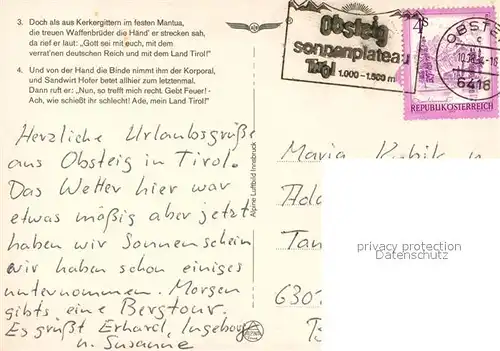 3. Doch als aus Kerkergittern im festen Mantua,
die treuen Waffenbrüder die Händ' er strecken sah,
da rief er laut: „Gott sei mit euch, mit dem
verrat'nen deutschen Reich und mit dem Land Tirol!"
4. Und von der Hand die Binde nimmt ihm der Korporal,
und Sandwirt Hofer betet allhier zum letztenmal.
Dann ruft er: „Nun, so trefft mich recht. Gebt Feuer! -
Ach, wie schießt ihr schlecht! Ade, mein Land Tirol!"
Herzliche Urlaubsgrüße
aus Obsteig in Tirol.
Das Wetter hier war
etwas mäßig aber jetzt
haben wir Sonnenschein
wir haben schon einiges
unternommen. Morgen
gibts eine Bergtour.
Es grüßt Erhard, Ingeborg
u. Susanne
Alpine Luftbild Innsbruck
Obsteig
sonnenplateau
Tirol 1.000-1.500 m
4 S
REPUBLIK ÖSTERREICH
OBSTE
6416
Maria
630
privacy protection
Datenschutz